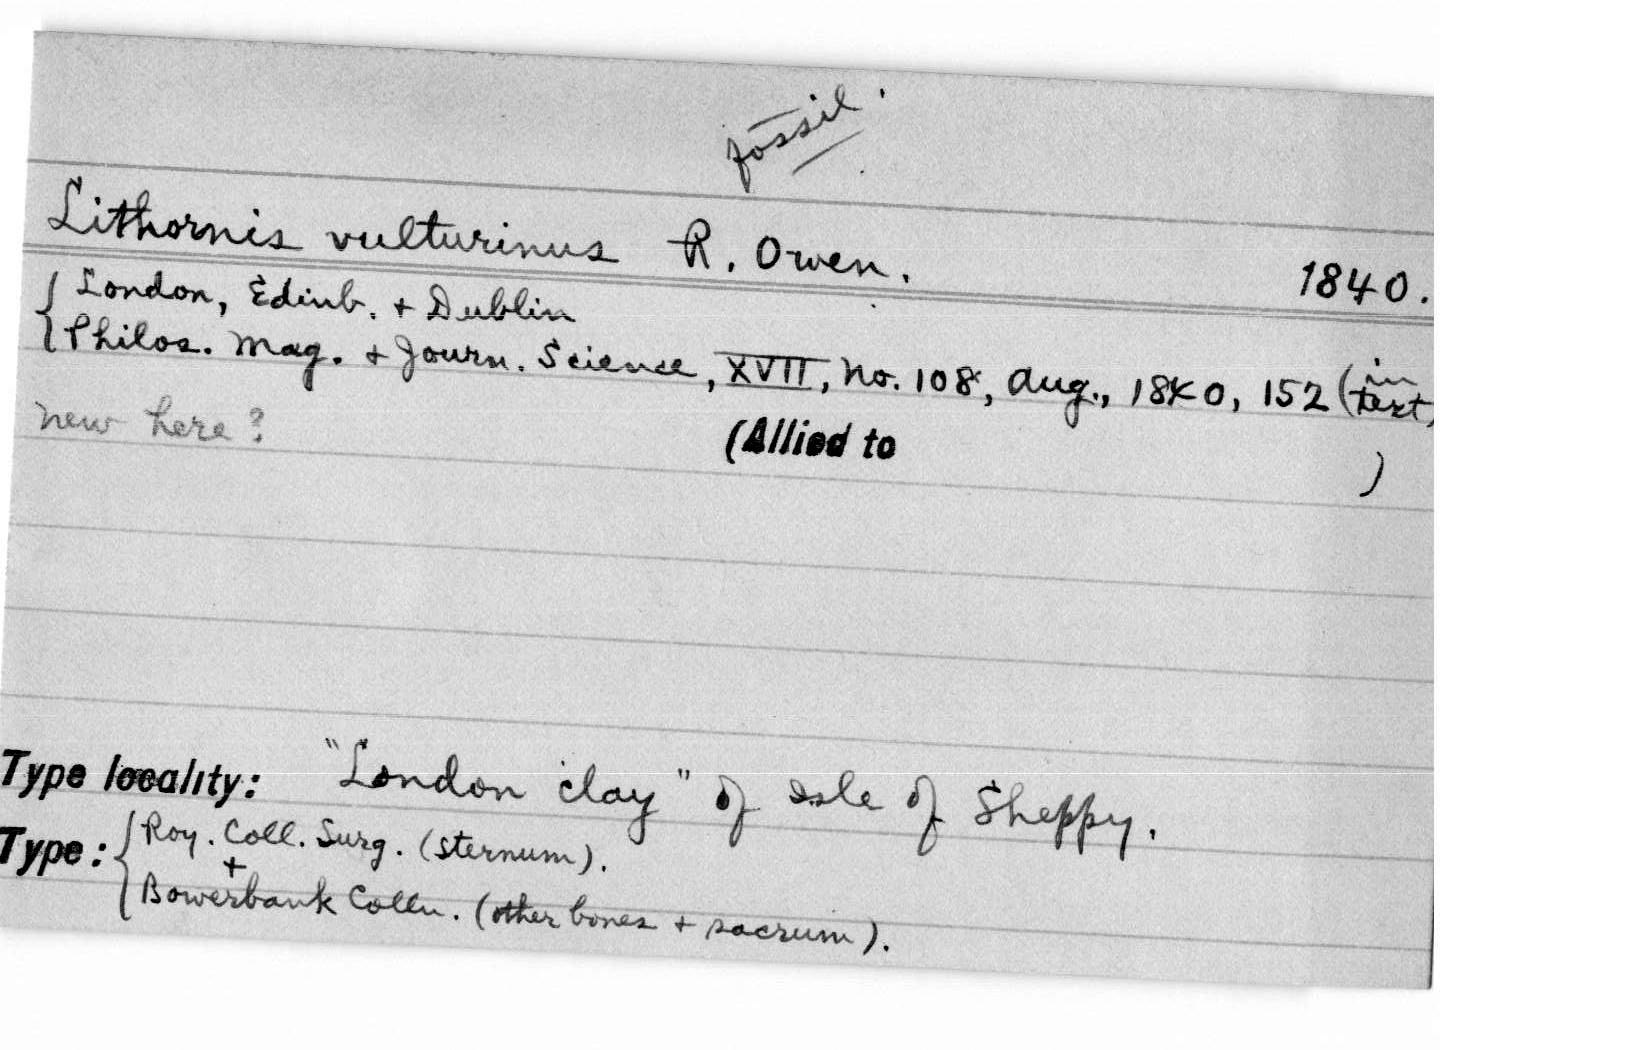 fossil.
Lithornis vulturinus R. Owen. 1840.
London, Edinb. + Dublin
Philos. Mag. + Journ. Science, XVII, No. 108, Aug., 1840, 152 (in text)
new here?
(Allied to )
Type locality: "London clay" of Isle of Sheppy.
Type: Roy. Coll. Surg. (sternum).
+
Bowerbank Colln. (other bones + sacrum).